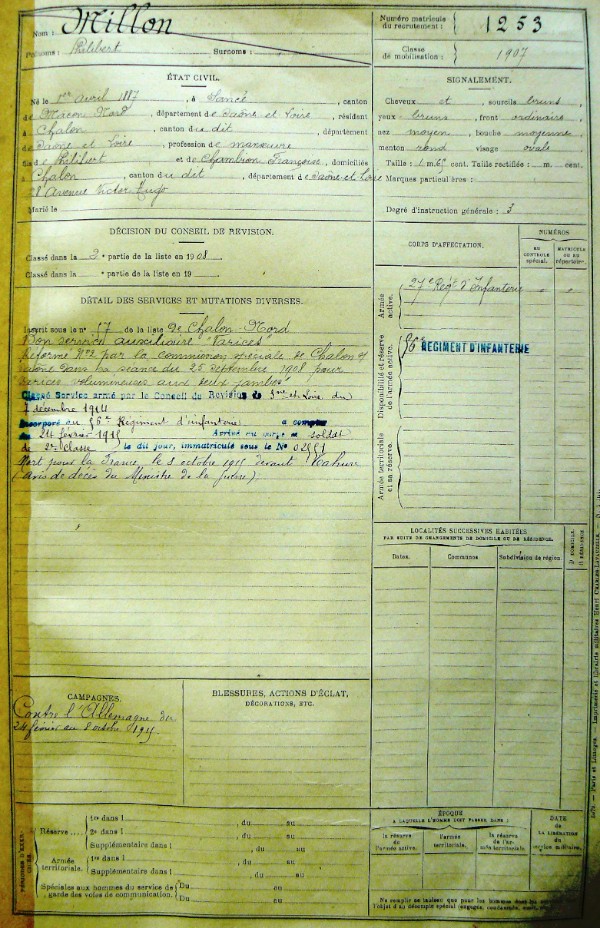 Nom : Millon
Prénoms : Philibert Surnoms :
Numéro matricule du recrutement : 1253
Classe de mobilisation : 1907
ÉTAT CIVIL.
Né le 1er avril 1887, à Sancé, canton
de Macon Nord, département de Saône et Loire, résident
à Chalon, canton du dit, département
Saône et Loire, profession de manœuvre
fils de Philibert et de Chambion Françoise, domiciliés
à Chalon, canton du dit, département de Saône-et-Loire
Avenue Victor Hugo
Marié le
SIGNALEMENT.
Cheveux et sourcils bruns,
yeux bruns, front ordinaire,
nez moyen, bouche moyenne,
menton rond visage ovale
Taille : 1 m. 65 cent. Taille rectifiée : m. cent.
Marques particulières :
Degré d'instruction générale : 3
DÉCISION DU CONSEIL DE REVISION.
Classé dans la 2e partie de la liste en 1908
Classé dans la e partie de la liste en 19
DÉTAIL DES SERVICES ET MUTATIONS DIVERSES.
Inscrit sous le n° 57 de la liste de Chalon-Nord
Bon service auxiliaire "Varices"
Réformé N°2 par la commission spéciale de Chalon s/
Saône dans sa séance du 25 Septembre 1908 pour
"Varices volumineuses aux deux jambes"
Classé Service armé par le Conseil de Revision de Sne-et-Loire du
7 décembre 1914
Incorporé au 56e Régiment d'infanterie à compter
du 24 février 1915 Arrivé au corps et soldat
de 2e classe le dit jour, immatriculé sous le No
Mort pour la France le 8 octobre 1915 devant Tahure
(avis de décès du Ministre de la Guerre)
CORPS D'AFFECTATION.
NUMÉROS
AU CONTROLE spécial.
MATRICULE OU AU répertoire.
Armée active.
27e Régt d'Infanterie
Disponibilité et réserve de l'armée active.
56e REGIMENT D'INFANTERIE
Armée territoriale et sa réserve.
LOCALITÉS SUCCESSIVES HABITÉES
PAR SUITE DE CHANGEMENTS DE DOMICILE OU DE RÉSIDENCE.
Dates. Communes Subdivision de région D. DOMICILE. R. RÉSIDENCE
CAMPAGNES.
Contre l'Allemagne du
24 février au 8 octobre 1915
BLESSURES, ACTIONS D'ÉCLAT,
DÉCORATIONS, ETC.
PÉRIODES D'EXERCICES
Réserve
1re dans l , du au
2e dans l , du au
Supplémentaire dans l , du au
Armée territoriale.
1re dans l , du au
Supplémentaire dans l , du au
Spéciales aux hommes du service de garde des voies de communication.
Du au
Du au
ÉPOQUE
À LAQUELLE L'HOMME DOIT PASSER DANS :
la réserve de l'armée active.
l'armée territoriale.
la réserve de l'armée territoriale.
DATE
DE LA LIBÉRATION
du service militaire.
Ne remplir ce tableau que pour les hommes
l'objet d'un décompte spécial
Paris et Limoges. — Imprimerie et librairie militaires Henri CHARLES-LAVAUZELLE.